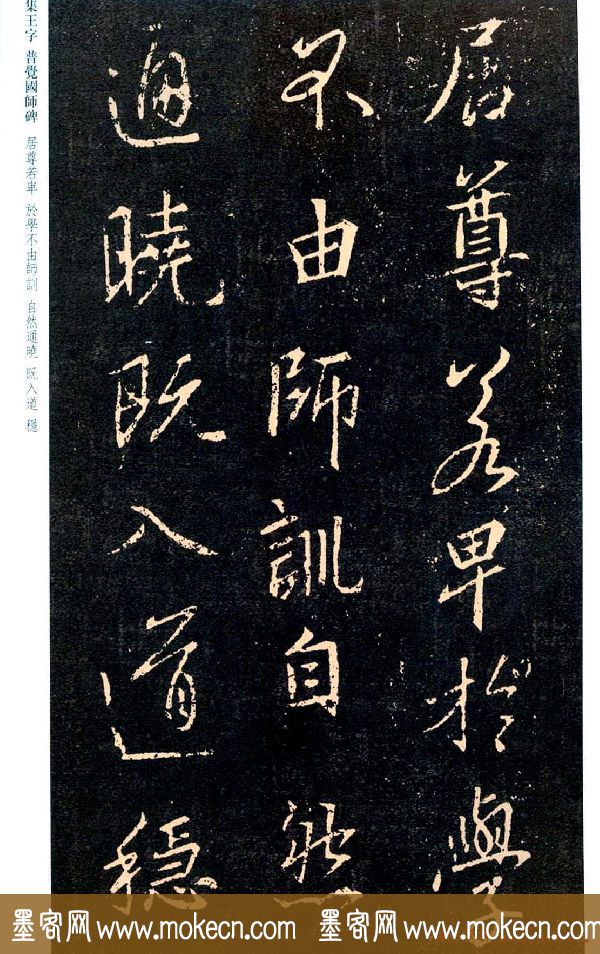 居尊若卑於學
不由師訓自然
通曉既入道穩
集王字 普覺國師碑 居尊若卑 於學不由師訓 自然通曉 既入道 穩
墨客网 www.mokecn.com 墨客网 www.mokecn.com